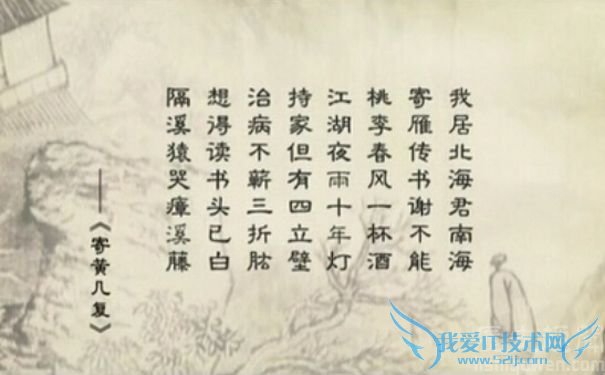 我居北海君南海
寄雁传书谢不能
桃李春风一杯酒
江湖夜雨十年灯
持家但有四立壁
治病不蕲三折肱
想得读书头已白
隔溪猿哭瘴溪藤
——《寄黄几复》
我爱IT技术网
www.52ij.com